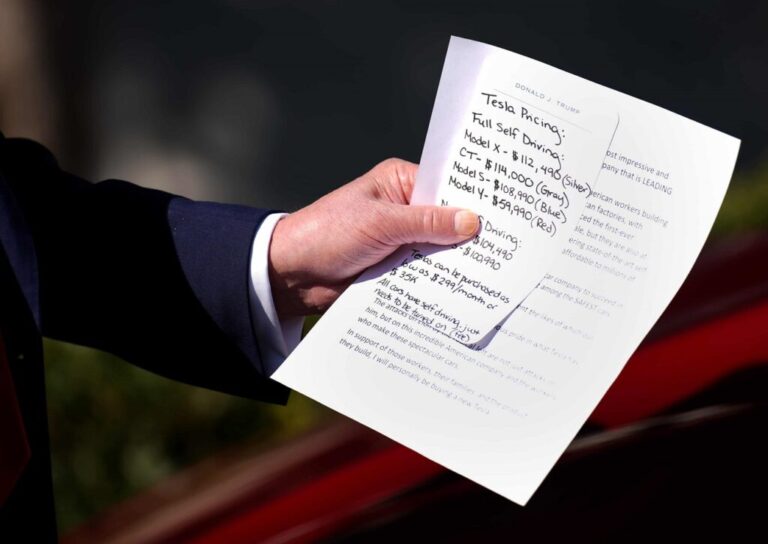 DONALD J. TRUMP
Tesla Pricing:
Full Self Driving:
Model X - $112,490 (Silver)
CT - $114,000 (Gray)
Model S - $108,990 (Blue)
Model Y - $59,990 (Red)
Driving:
$104,490
$100,990
Teslas can be purchased as
low as $299/month or
$35K
All cars have self driving, just
needs to be turned on (fee)
impressive and
that is LEADING
workers building
factories, with
the first-ever
but they are also at
state-of-the-art self
affordable to millions of
car company to succeed in
among the SAFEST cars
the likes of which our
pride in what Tesla has
The attacks on are not just attacks on
him, but on this incredible American company and the workers
who make these spectacular cars.
In support of those workers, their families, and the product
they build, I will personally be buying a new Tesla